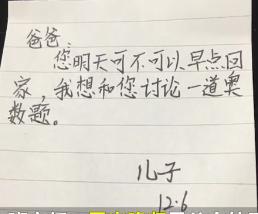 爸爸、
您明天可不可以早点回
家，我想和您讨论一道奥
数题。
儿子
12.6